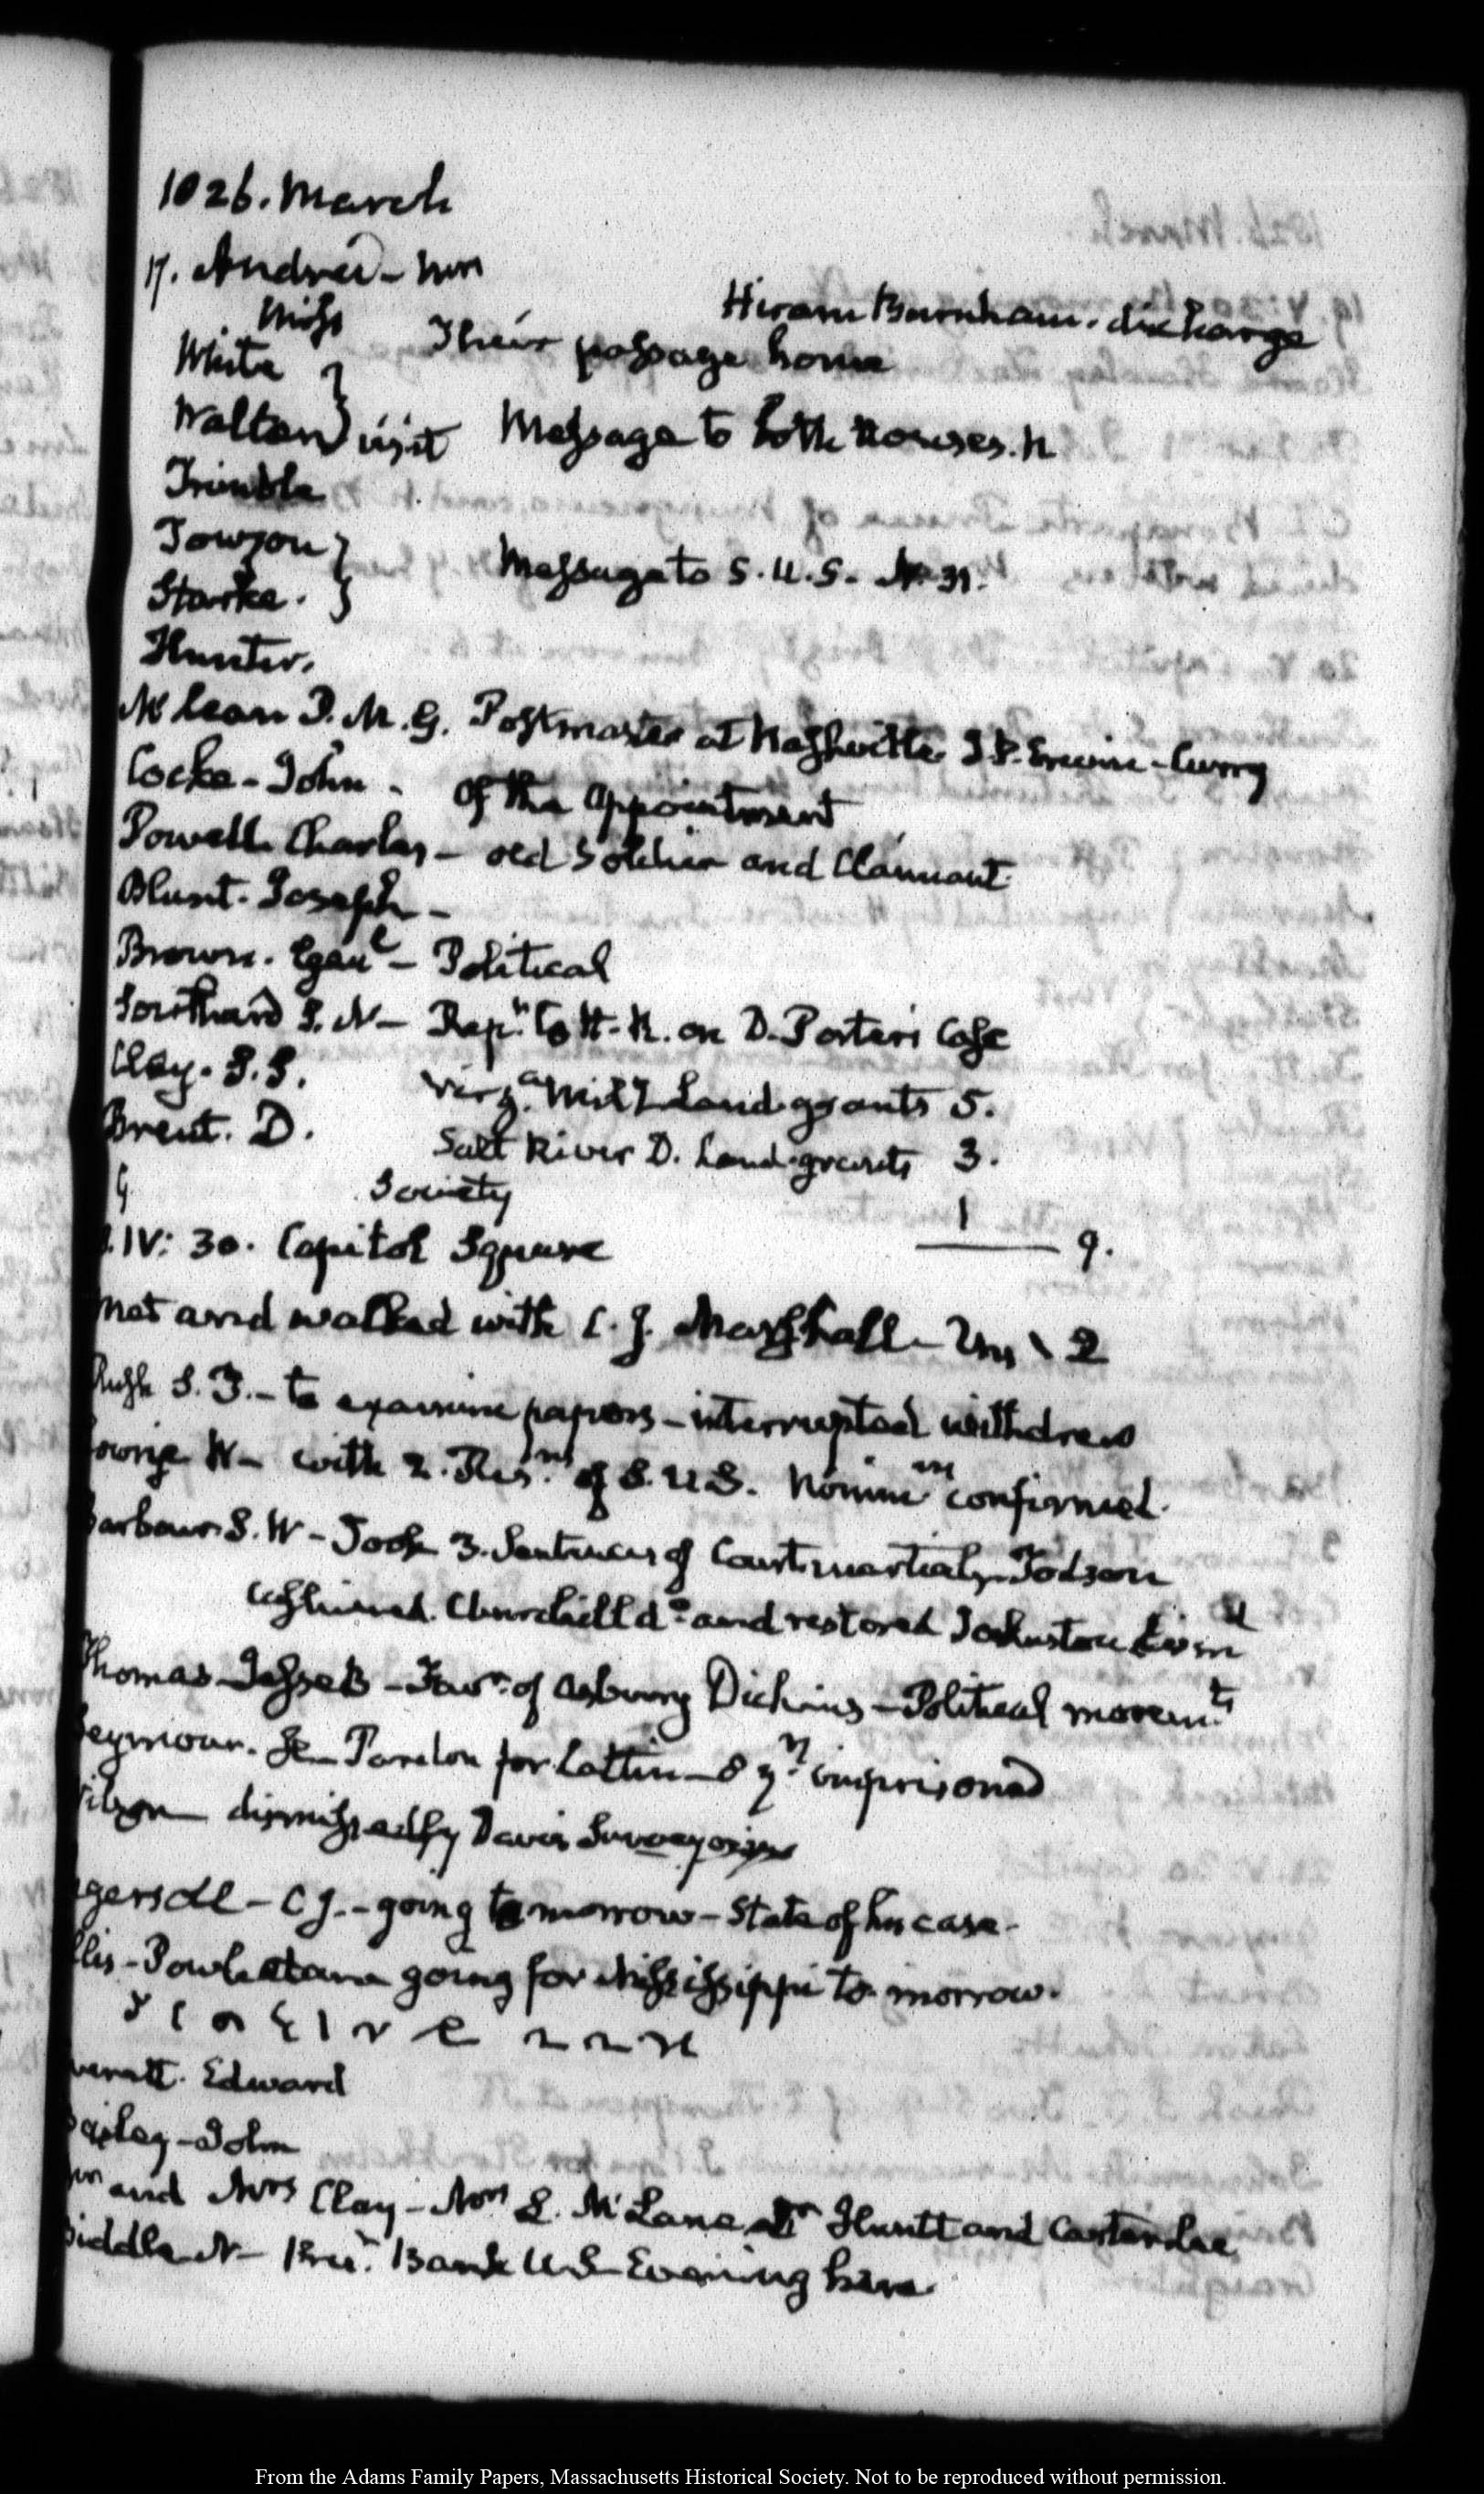 1826. March
17. Andrei - Mrs
Miss Their passage home
Hiram Burnham. discharge
White }
Walton } visit Message to both Houses. H
Trimble
Towson }
Starke. } Message to S.U.S. No 31.
Hunter.
McLean P.M.G. Postmaster at Nashville J.P. Erwin - Curry
Cocke - John - of the appointment
Powell Charles - old Soldier and Claimant
Blunt. Joseph -
Brown. Genl - Political
Southard S. N - Rept to H.R. on D. Porter's Case
Clay. S.S. Virga Mily Land grants 5.
Brent. D. Salt River D. Land grants 3.
Society 1
9.
IV: 30. Capitol Square
met and walked with C.J. Marshall - 2
Rush S.T. - to examine papers - interrupted withdrew
Lowrie W - with 2. Resns of S.U.S. Nominns confirmed.
Barbour S.W - Took 3. Sentences of Courts martial, Dodson
cashiered. Churchill do and restored Johnston
Thomas Jesse B - Favr of Asbury Dickins - Political movemts
Seymour. - Pardon for Lattin - 8 yrs imprisoned
dismissed by Davis Surveyor
Ingersoll - C.J. - going tomorrow - State of his case -
Ellis - Powhatan going for Mississippi to-morrow.
Everett. Edward
Bailey - John
Mr and Mrs Clay - Mrs L. McLane, Drs Huntt and Castardee
Biddle N - Prest Bank U.S Evening here
From the Adams Family Papers, Massachusetts Historical Society. Not to be reproduced without permission.